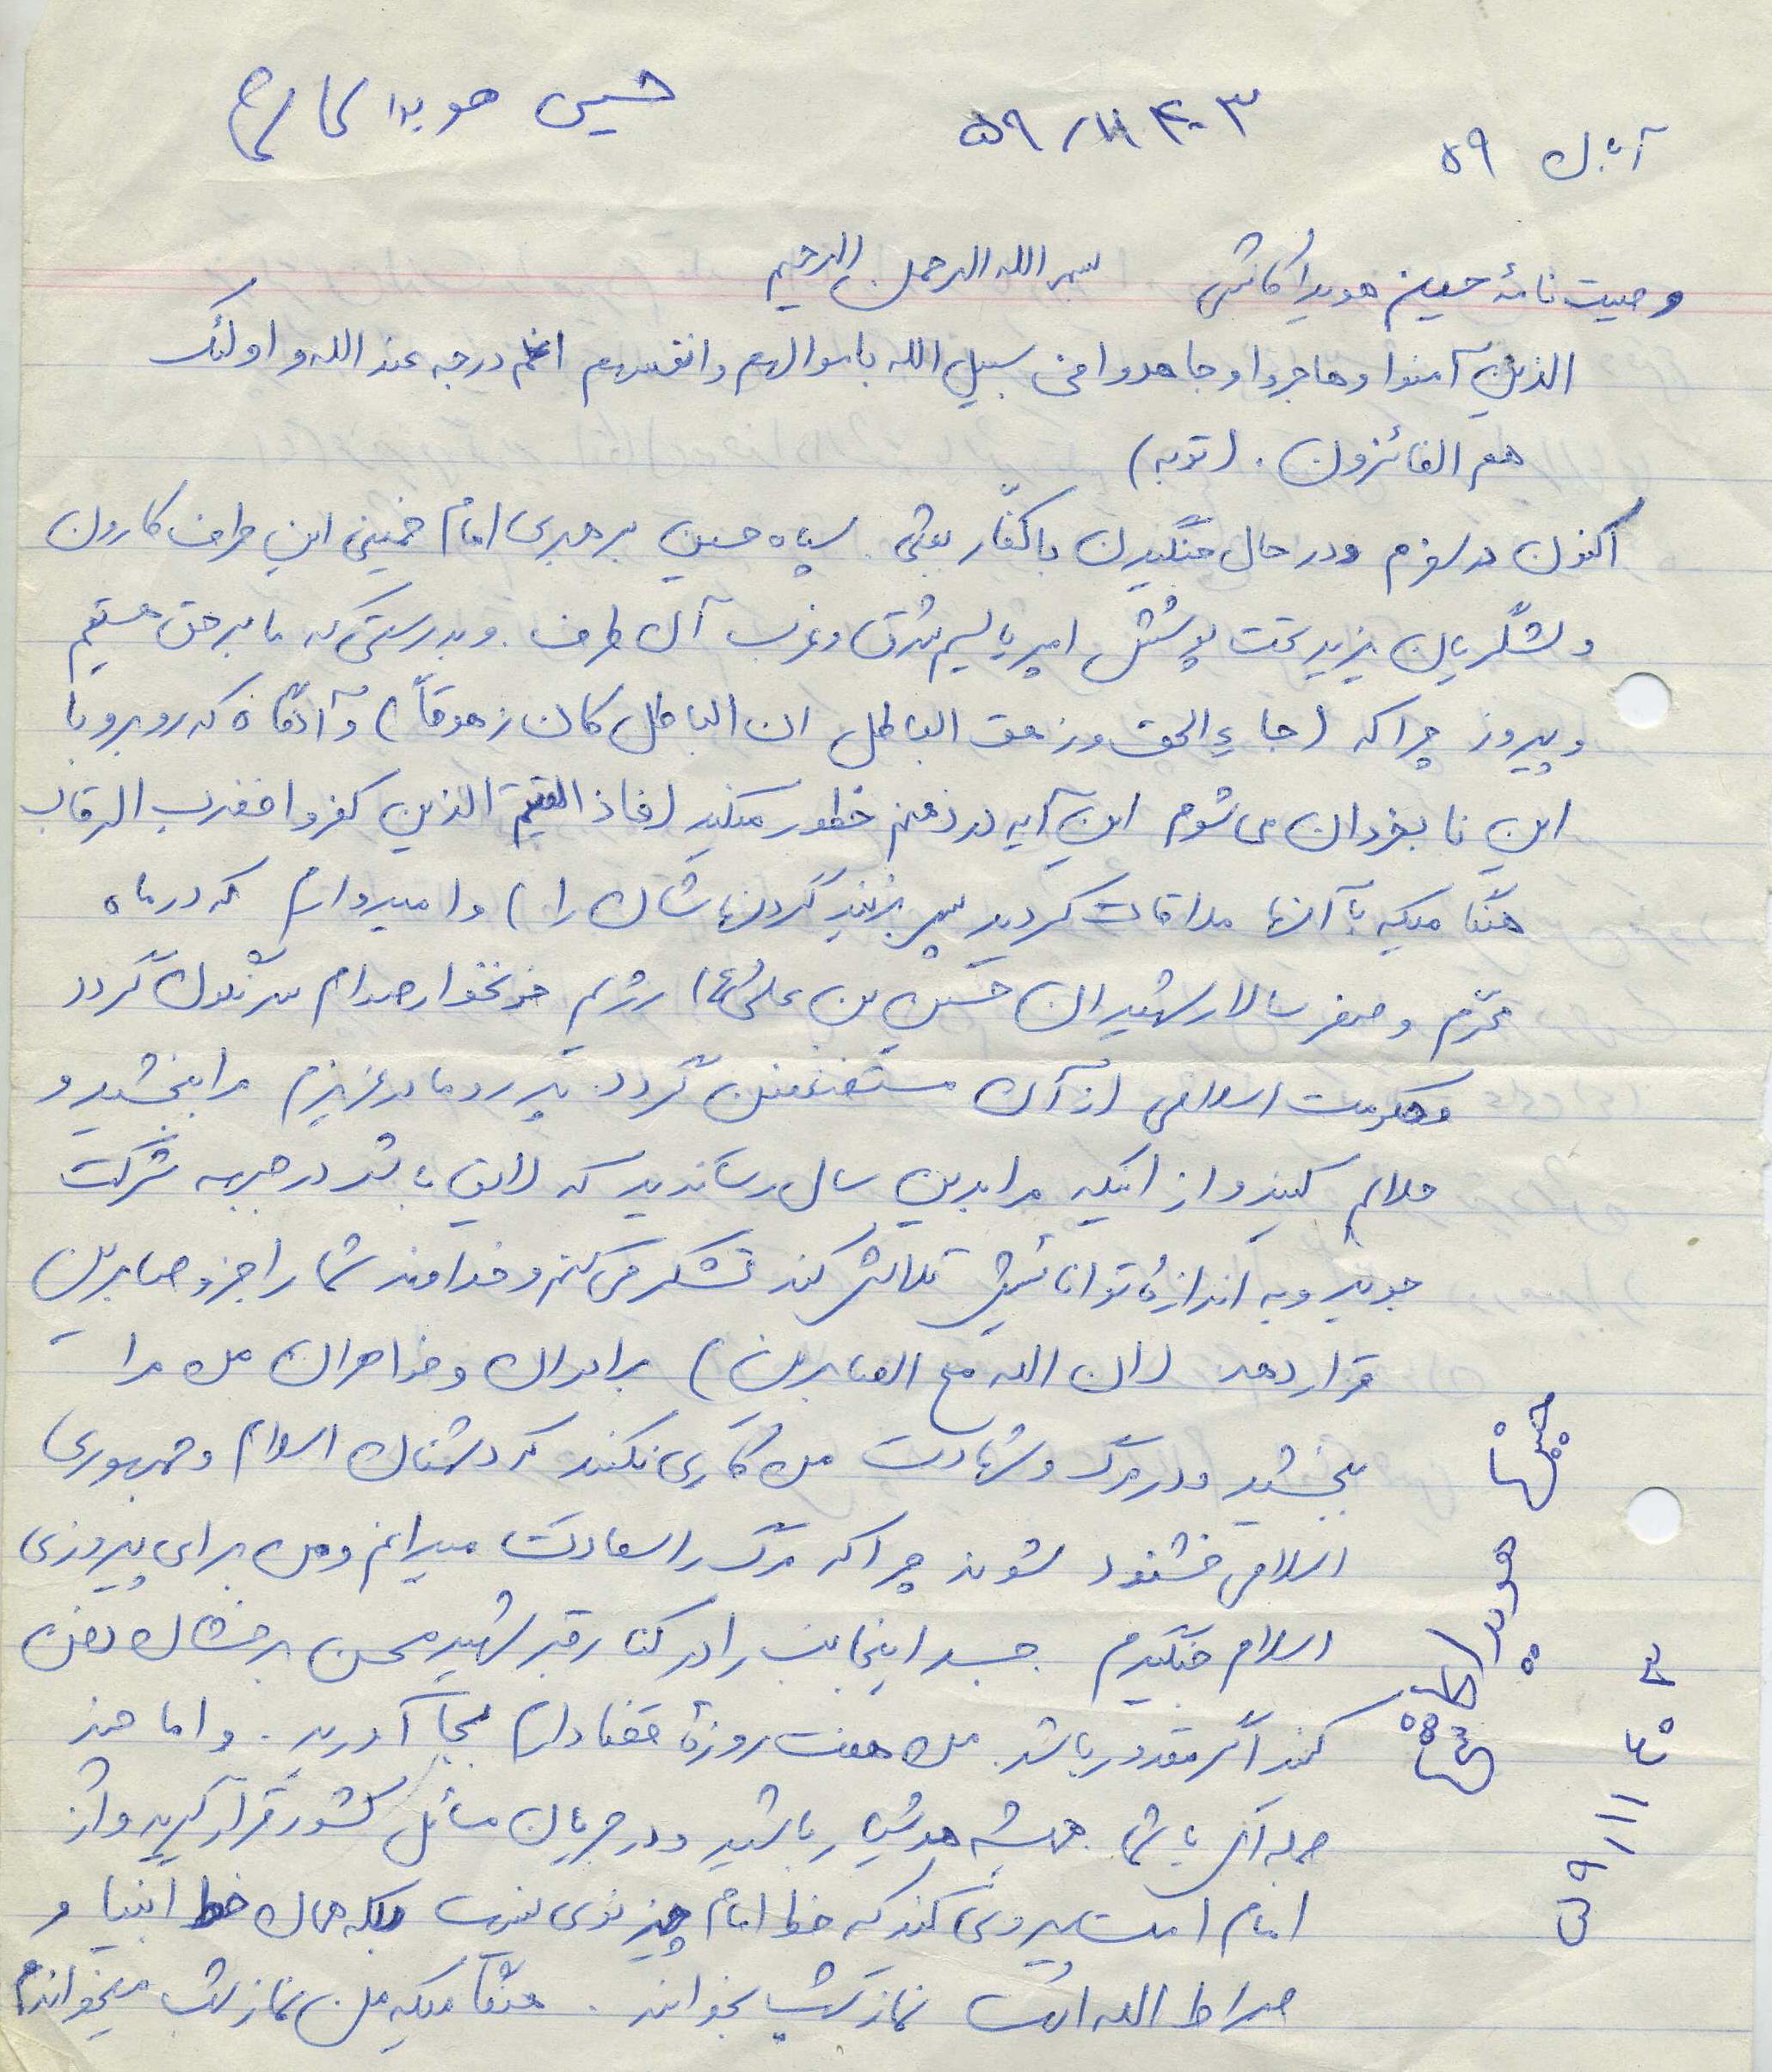 حسین هویدا
آبان ۵۹
وصیت نامهٔ حسین هویدا بسم الله الرحمن الرحیم
الذین آمنوا و هاجروا و جاهدوا فی سبیل الله باموالهم وانفسهم اعظم درجه عند الله و اولئک
هم الفائزون. (توبه)
اکنون در سفرم ودر حال جنگیدن با کفّار بعثی. سپاه حسین برهبری امام خمینی این طرف کارون
و لشگریان یزید تحت پوشش امپریالیسم شرق و غرب آن طرف. و بدرستی که ما بر حق هستیم
و پیروز چرا که (جاءِ الحق و زهق الباطل ان الباطل کان زهوقاً) و آنگاه که روبرو با
این نابخردان می شوم این آیه در ذهنم خطور میکند (فاذا لقیتم الذین کفروا فضرب الرقاب
هنگامیکه با آنها ملاقات کردید پس بزنید گردنهاشان را) و امیدوارم که در ماه
محّرم و صفر سالار شهیدان حسین بن علی (ع) رژیم خونخوار صدام سرنگون گردد
وحکومت اسلامی از آن مستضعفین گردد. پدر و مادر عزیزم مرا ببخشید و
حلالم کنید و از اینکه مرا بدین سال رساندید که لایق باشد در جبهه شرکت
جوید و به اندازهٔ توانائیش تلاش کند تشکر می کنم و خداوند شما را جزو صابرین
قرار دهد (ان الله مع الصابرین) برادران و خواهران من مرا
ببخشید و در مرگ و شهادت من کاری نکنند که دشمنان اسلام و جمهوری
اسلامی خشنود شوند چرا که مرگ را سعادت میدانم و من برای پیروزی
اسلام جنگیدم جسد اینجانب را در کنار قبر شهید محسن دفن
کنید اگر مقدور باشد. من هفت روزهٔ قضا دارم بجا آورید. و اما چند
جمله ای با شما. همیشه هوشیار باشید و در جریان مسائل کشور قرار گیرید و از
امام امت پیروی کنید که خط امام چیز نوی نیست بلکه همان خط انبیا و
صراط الله است نماز شب بخوانید. هنگامیکه من نماز شب میخواندم
حسین
هویدا
۵۹/۱۱